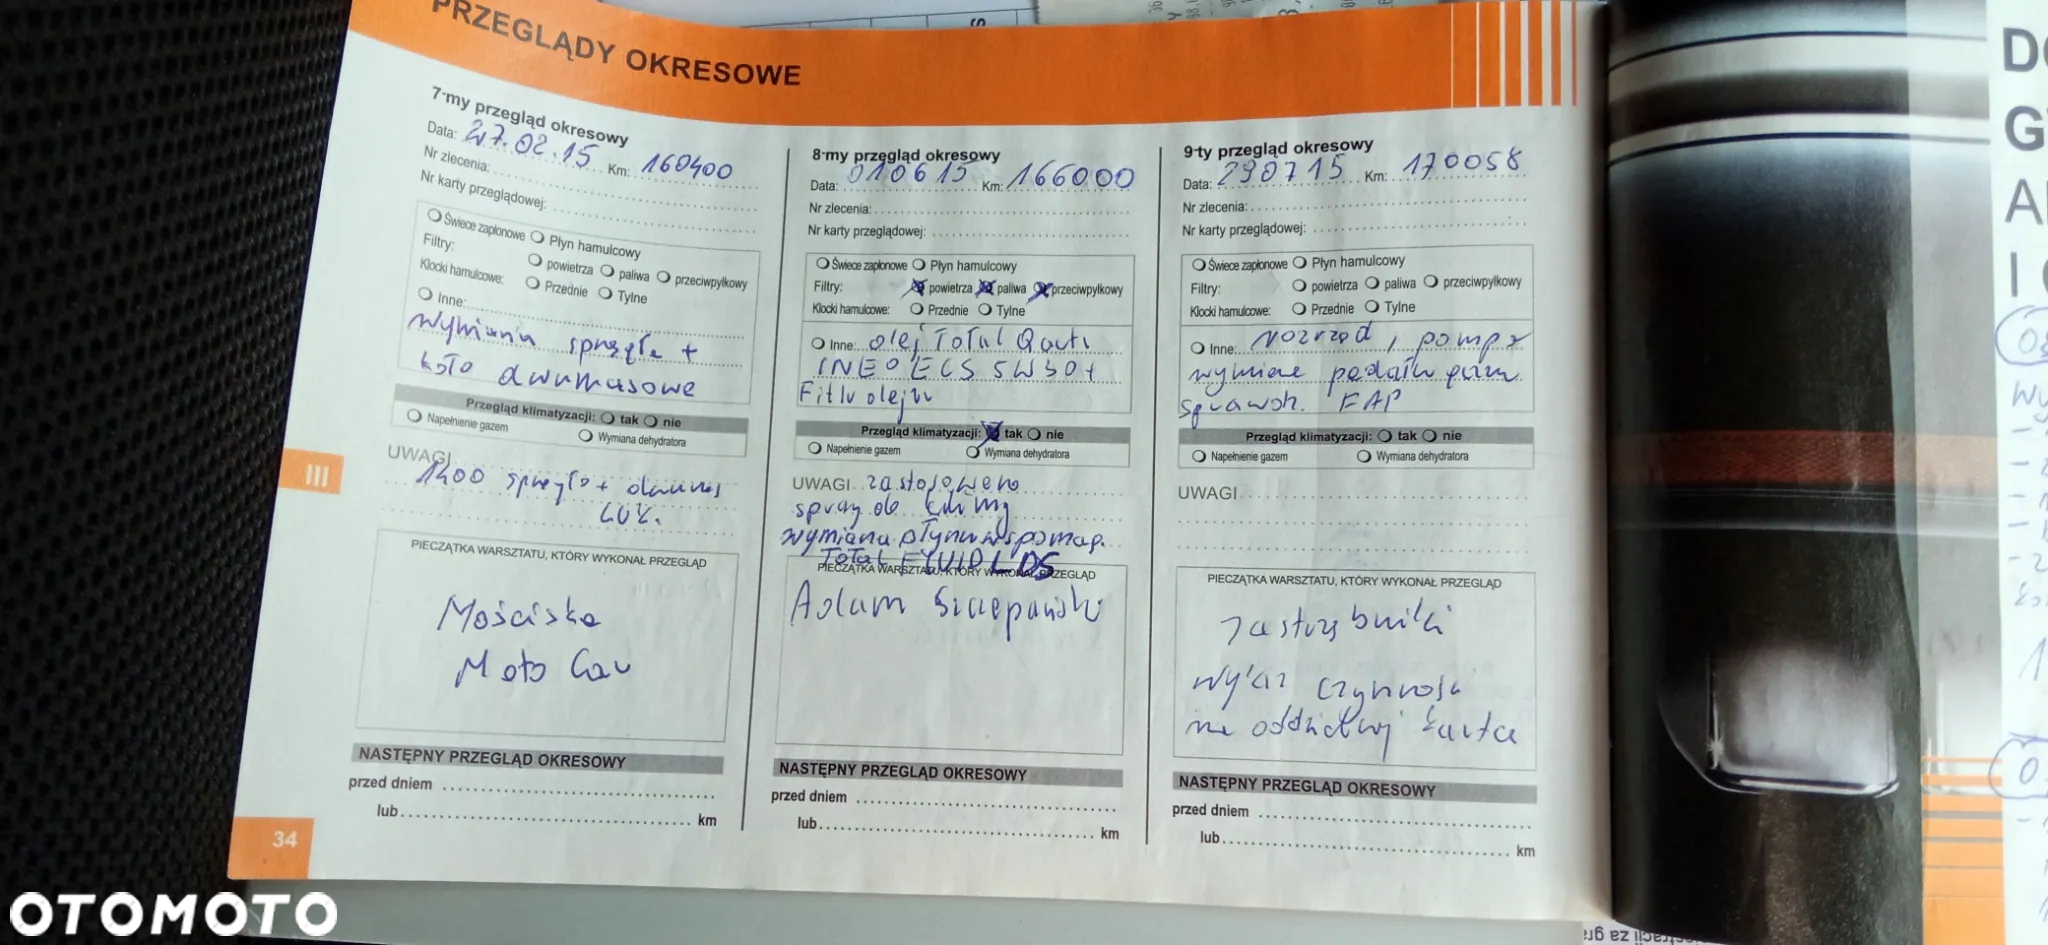 PRZEGLĄDY OKRESOWE
7-my przegląd okresowy
Data: 27.02.15 Km: 160400
Nr zlecenia:
Nr karty przeglądowej:
Świece zapłonowe Płyn hamulcowy
Filtry: powietrza paliwa przeciwpyłkowy
Klocki hamulcowe: Przednie Tylne
Inne:
Wymiana sprzęgła +
koło dwumasowe
Przegląd klimatyzacji: tak nie
Napełnienie gazem Wymiana dehydratora
UWAGI
1400 sprzęgło +
LUK.
PIECZĄTKA WARSZTATU, KTÓRY WYKONAŁ PRZEGLĄD
Mościska
Moto Car
NASTĘPNY PRZEGLĄD OKRESOWY
przed dniem
lub km
III
34
8-my przegląd okresowy
Data: 010615 Km: 166000
Nr zlecenia:
Nr karty przeglądowej:
Świece zapłonowe Płyn hamulcowy
Filtry: powietrza paliwa przeciwpyłkowy
Klocki hamulcowe: Przednie Tylne
Inne: olej Total
INEO ECS 5W30 +
Filtr oleju
Przegląd klimatyzacji: tak nie
Napełnienie gazem Wymiana dehydratora
UWAGI zastosowano
spray do klimy
wymiana płynu wspomag.
Total FLUID LDS
PIECZĄTKA WARSZTATU, KTÓRY WYKONAŁ PRZEGLĄD
Adam Szczepański
NASTĘPNY PRZEGLĄD OKRESOWY
przed dniem
lub km
9-ty przegląd okresowy
Data: 290715 Km: 170058
Nr zlecenia:
Nr karty przeglądowej:
Świece zapłonowe Płyn hamulcowy
Filtry: powietrza paliwa przeciwpyłkowy
Klocki hamulcowe: Przednie Tylne
Inne: rozrząd, pompa
wymiana pedału gazu
sprawdz. FAP
Przegląd klimatyzacji: tak nie
Napełnienie gazem Wymiana dehydratora
UWAGI
PIECZĄTKA WARSZTATU, KTÓRY WYKONAŁ PRZEGLĄD
Jastrzębnicki
wykaz czynności
na oddzielnej kartce
NASTĘPNY PRZEGLĄD OKRESOWY
przed dniem
lub km
OTOMOTO